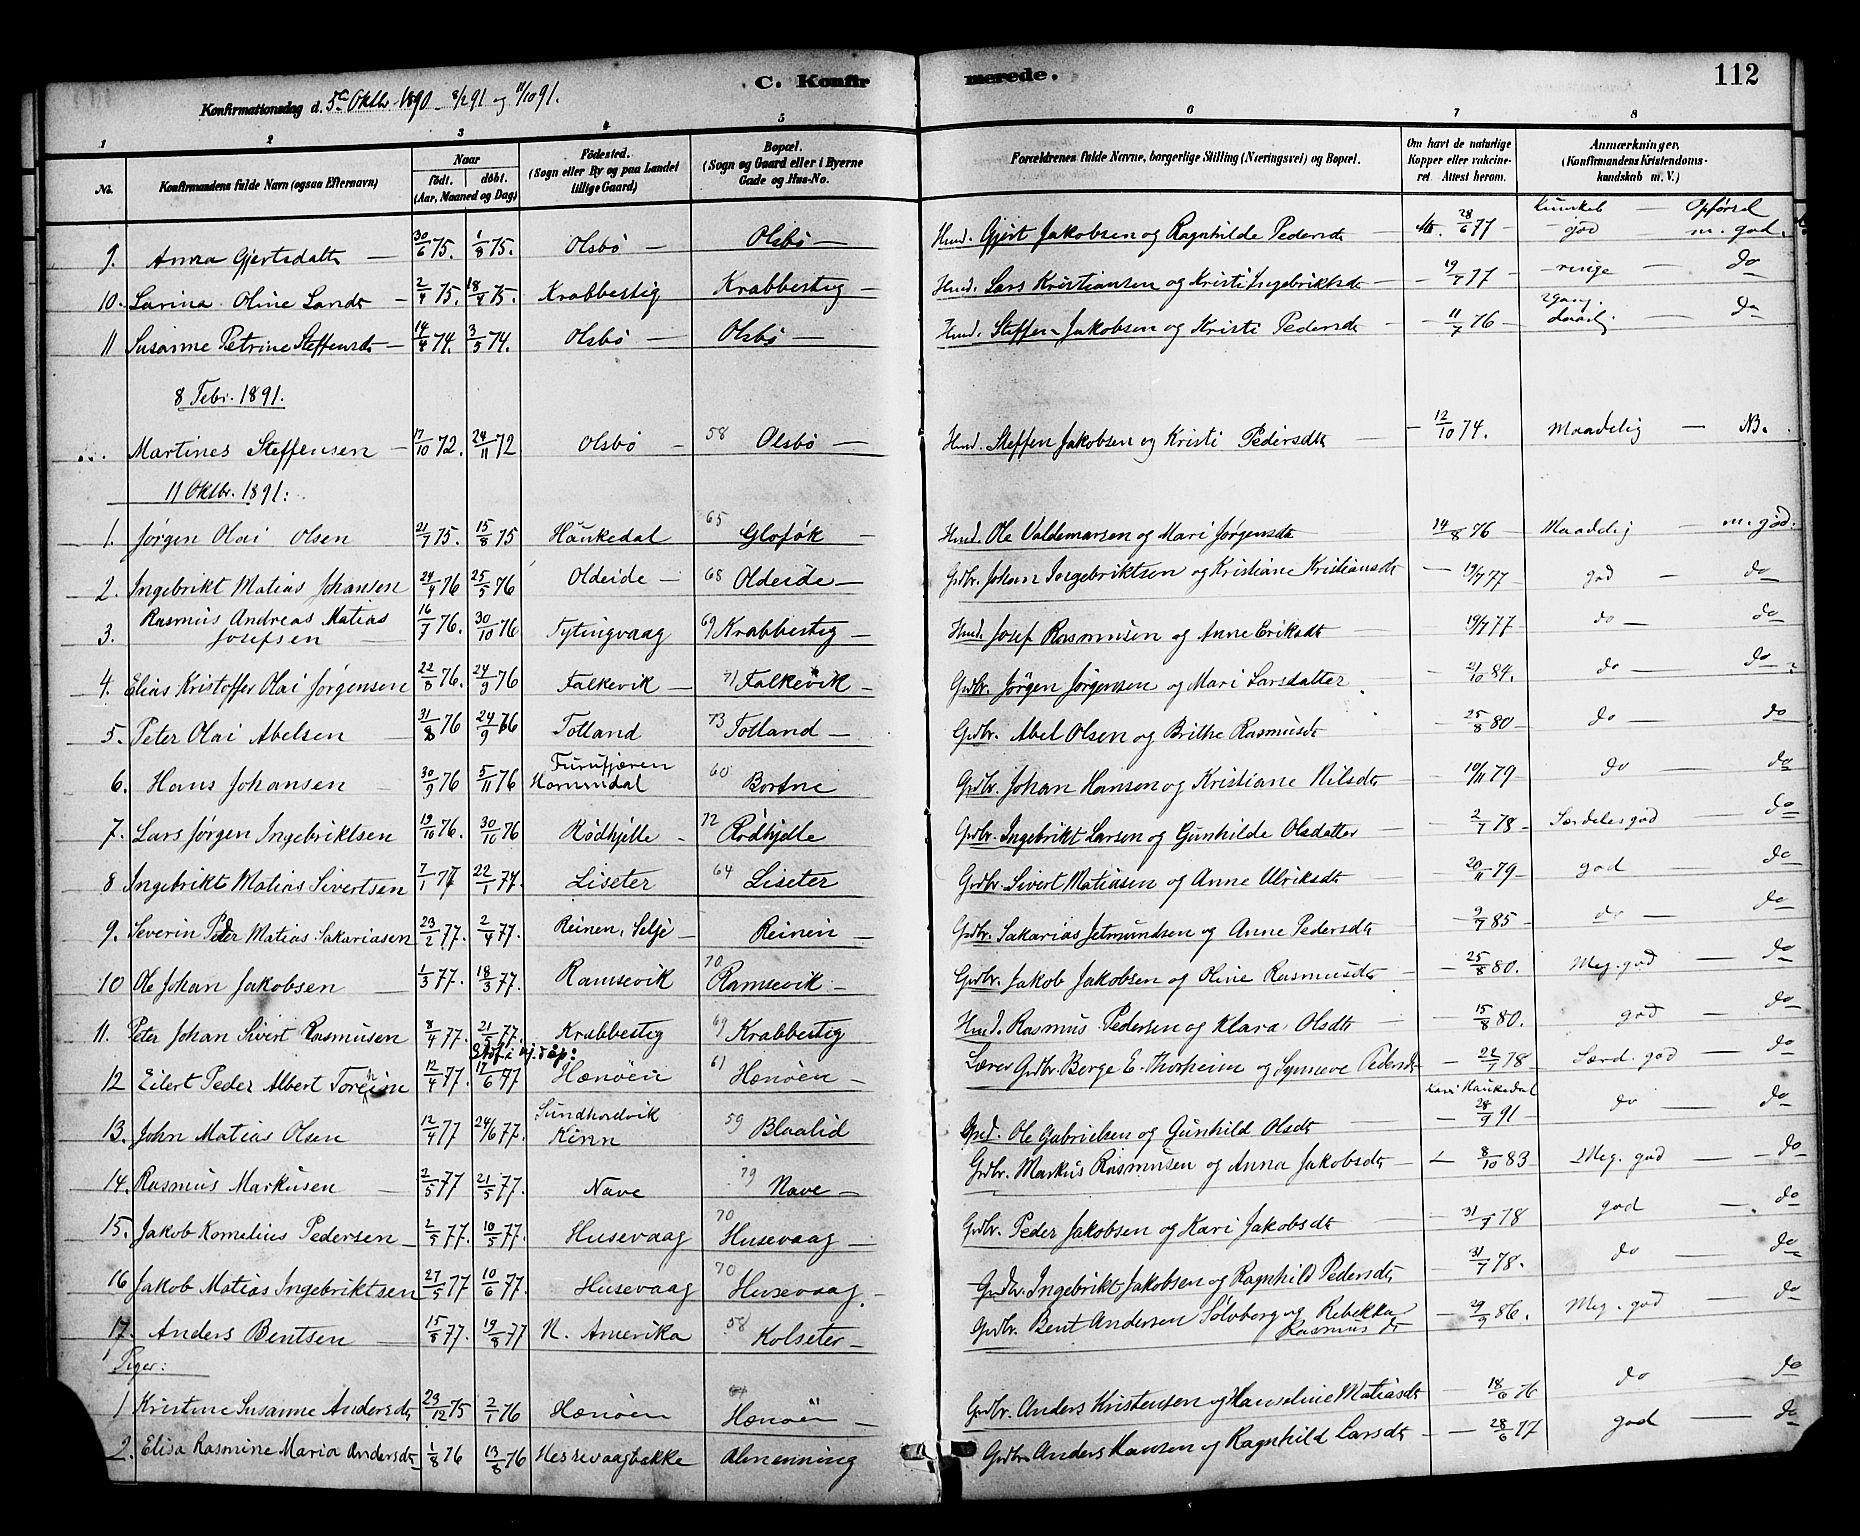 C. Konfirmerede. 112
Konfirmationsdag d. 5te Oktbr. 1890 – 8/2 91 og 11/10 91.
1 2 3 4 5 6 7 8
No. Konfirmandens fulde Navn (ogsaa Efternavn) Naar født. døbt. (Aar, Maaned og Dag) Fødested. (Sogn eller By og paa Landet tillige Gaard) Bopæl. (Sogn og Gaard eller i Byerne Gade og Hus-No. Forældrenes fulde Navne, borgerlige Stilling (Næringsvei) og Bopæl. Om havt de naturlige Kopper eller vakcineret. Attest herom. Anmærkninger. (Konfirmandens Kristendomskundskab m. V.)
9. Anna Gjertsdatter 30/6 75. 1/8 75. Olsbø — Olsbø — Husmd. Gjert Jakobsen og Ragnhilde Pedersdtr 28/6 77 Kundskab god — Opførsel m. god.
10. Larina Oline Larsdtr 2/4 75. 18/4 75. Krabbestig Krabbestig — Husmd. Lars Kristiansen og Kristi Ingebriktsdtr 19/7 77 ringe — do
11 Susanne Petrine Steffensdtr 14/4 74. 3/5 74. Olsbø — Olsbø — Husmd. Steffen Jakobsen og Kristi Pedersdtr 11/7 76 do
8 Febr. 1891.
Martines Steffensen 17/10 72. 24/11 72 Olsbø — 58 Olsbø — Husmd. Steffen Jakobsen og Kristi Pedersdtr 12/10 74. Maadelig — NB.
11 Oktbr. 1891:
1. Jørgen Olai Olsen 21/7 75. 15/8 75 Haukedal 65 Gloføk — Husmd. Ole Valdemarsen og Mari Jørgensdtr 14/8 76 Maadelig — m. god.
2. Ingebrikt Matias Johansen 24/4 76 25/5 76 Oldeide — 68 Oldeide — Grdbr. Johan Ingebriktsen og Kristiane Kristiansdtr 19/7 77 god — do
3. Rasmus Andreas Matias Josefsen 16/7 76. 30/10 76 Tytingvaag 69 Krabbestig — Husmd. Josef Rasmusen og Anne Eriksdtr 19/7 77 do — do
4. Elias Kristoffer Olai Jørgensen 22/8 76. 24/9 76 Falkevik — 71 Falkevik — Grdbr. Jørgen Jørgensen og Mari Larsdatter 21/10 84. do — do
5. Peter Olai Abelsen 31/8 76 24/9 76 Totland 73 Totland — Grdbr. Abel Olsen og Brithe Rasmusdtr 25/8 80 do — do
6. Hans Johansen 30/9 76 5/11 76 Furufjæren Hornindal 60 Bortne Grdbr. Johan Hansen og Kristiane Nilsdtr 10/11 79 do do
7. Lars Jørgen Ingebriktsen 19/10 76. 30/10 76 Rødhjelle 72 Rødhjelle Grdbr. Ingebrikt Larsen og Gunhilde Olsdatter 2/7 78 Særdeles god — do
8 Ingebrikt Matias Sivertsen 7/1 77 22/1 77. Liseter 64 Liseter Grdbr. Sivert Matiasen og Anne Ulriksdtr 20/11 79 god — do
9. Severin Peder Matias Sakariasen 23/2 77. 2/4 77. Reinen, Selje Reinen — Grdbr. Sakarias Jetmundsen og Anne Pedersdtr 9/7 85 do — do
10 Ole Johan Jakobsen 1/3 77. 18/3 77. Ramsevik 70 Ramsevik — Grdbr. Jakob Jakobsen og Oline Rasmusdtr 25/8 80. Meg. god do
11. Peter Johan Sivert Rasmusen 8/4 77. 21/5 77. Krabbestig 69 Krabbestig Husmd. Rasmus Pedersen og Klara Olsdtr 15/8 80. god — do
12 Eilert Peder Albert Torheim 12/4 77. 17/6 77 Hænøen 61 Hænøen — Lærer Grdbr. Børge E. Thorheim og Synneve Pedersdtr 22/7 78 Særd. god — do
13. John Matias Olsen 12/4 77 24/6 77. Sundhordvik Kinn 59 Blaalid Ole Gabrielsen og Gunhild Olsdtr Haukedal 28/9 91 do do
14. Rasmus Markusen 2/5 77 21/5 77. Nave 79 Nave — Grdbr. Markus Rasmusen og Anna Jakobsdtr 8/10 83 Meg. god — do
15. Jakob Kornelius Pedersen 2/5 77. 10/5 77. Husevaag 70 Husevaag — Grdbr. Peder Jakobsen og Kari Jakobsdtr 31/7 78 god — do
16 Jakob Matias Ingebriktsen 27/5 77 10/6 77. Husevaag 70 Husevaag. Grdbr. Ingebrikt Jakobsen og Ragnhild Pedersdtr 31/7 78. do — do
17. Anders Bentsen 15/8 77. 19/8 77 N. Amerika 58 Kolseter — Grdbr. Bent Andersen Sølvberg og Rebekka Rasmusdtr 29/9 86. Meg. god — do
Piger:
1 Kristine Susanne Andersdtr 23/12 75 2/1 76 Hænøen Hænøen — Grdbr. Anders Kristensen og Hanseline Matiasdtr 18/6 76 do do
2. Elisa Rasmine Maria Andersdtr 1/8 76 13/8 76 Hessevaagbakke Almenning Grdbr. Anders Hansen og Ragnhild Larsdtr 28/6 77 god — do